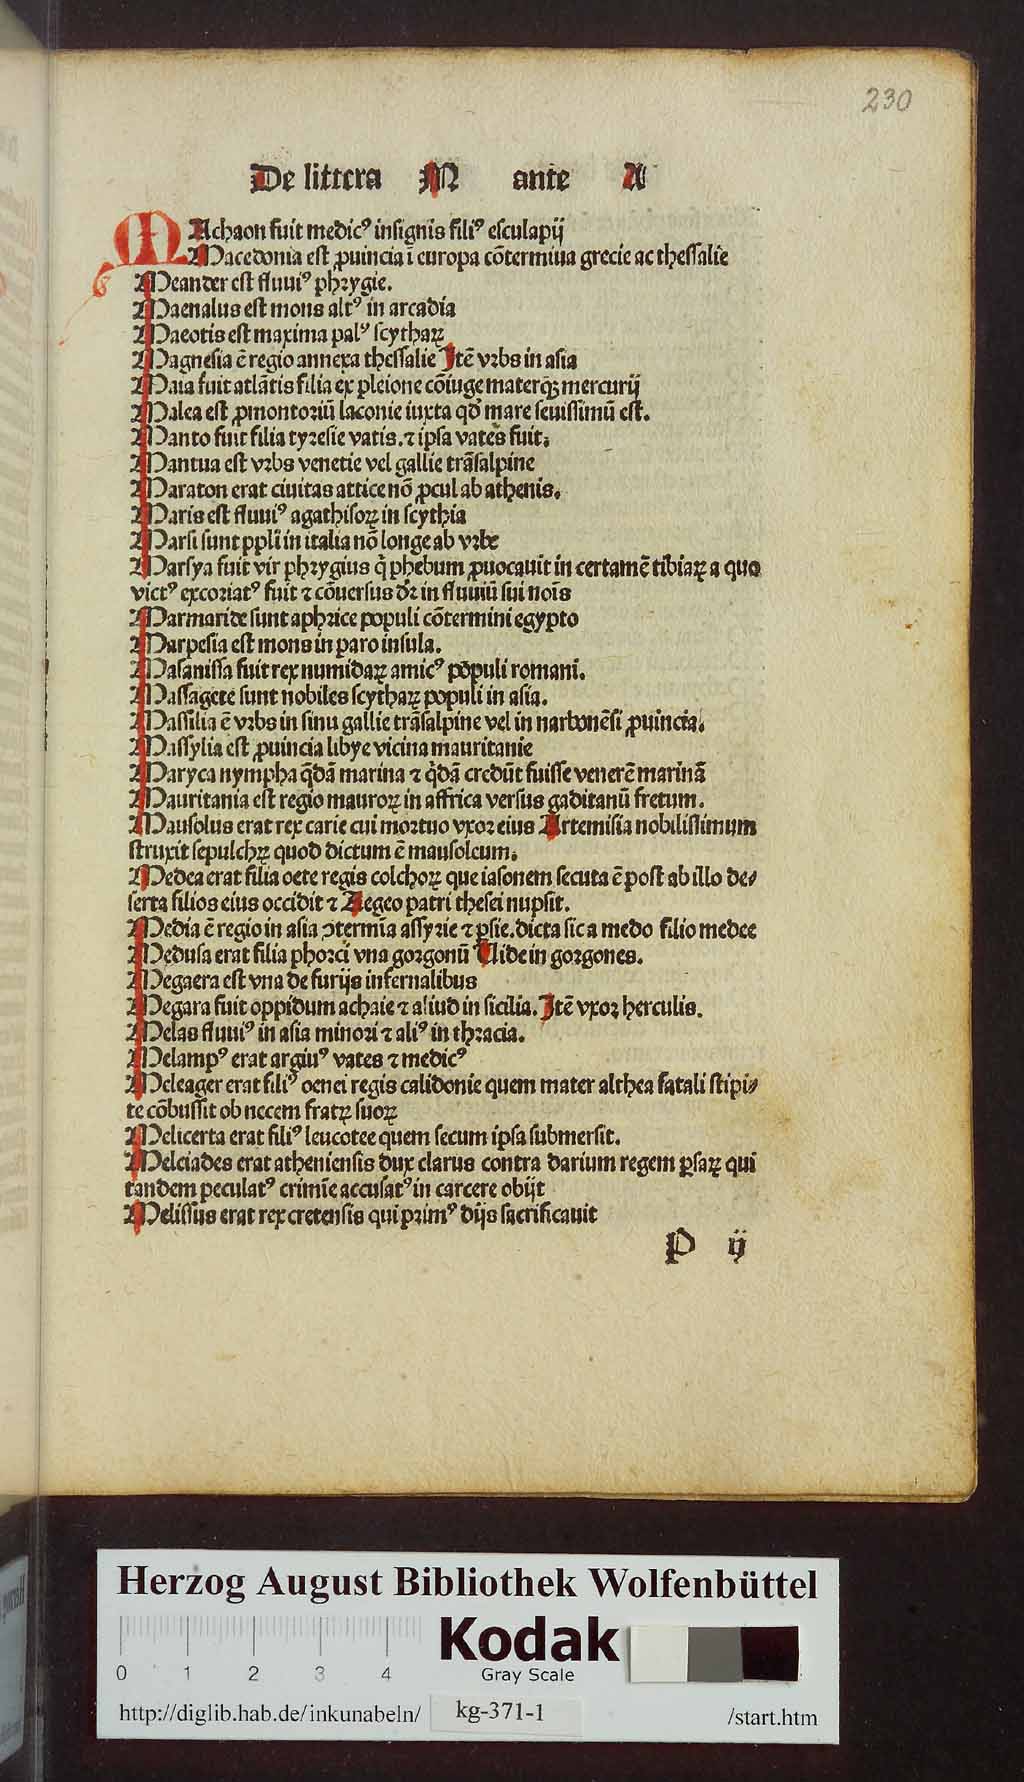 230
De littera M ante A
MAchaon fuit medicꝰ insignis filiꝰ esculapij
Macedonia est ꝓuincia ī europa cōtermina grecie ac thessalie
Meander est fluuiꝰ phrygie.
Maenalus est mons altꝰ in arcadia
Maeotis est maxima palꝰ scythaꝝ
Magnesia ē regio annexa thessalie Itē vrbs in asia
Maia fuit atlātis filia ex pleione cōiuge materqꝫ mercurij
Malea est ꝓmontoriū laconie iuxta qđ mare seuissimū est.
Manto fuit filia tyresie vatis. ⁊ ipsa vates fuit.
Mantua est vrbs venetie vel gallie trāsalpine
Maraton erat ciuitas attice nō ꝓcul ab athenis.
Maris est fluuiꝰ agathisoꝝ in scythia
Marsi sunt ppli in italia nō longe ab vrbe
Marsya fuit vir phrygius q̄ phebum ꝓuocauit in certamē tibiaꝝ a quo
victꝰ excoriatꝰ fuit ⁊ cōuersus dr̄ in fluuiū sui nois
Marmaride sunt aphrice populi cōtermini egypto
Marpesia est mons in paro insula.
Masanissa fuit rex numidaꝝ amicꝰ populi romani.
Massagete sunt nobiles scythaꝝ populi in asia.
Massilia ē vrbs in sinu gallie trāsalpine vel in narbonēsi ꝓuincia.
Massylia est ꝓuincia libye vicina mauritanie
Maryca nympha q̄dā marina ⁊ q̄dā credūt fuisse venerē marinā
Mauritania est regio mauroꝝ in affrica versus gaditanū fretum.
Mausolus erat rex carie cui mortuo vxor eius Artemisia nobilissimum
struxit sepulchꝝ quod dictum ē mausoleum.
Medea erat filia oete regis colchoꝝ que iasonem secuta ē post ab illo de⸗
serta filios eius occidit ⁊ Aegeo patri thesei nupsit.
Media ē regio in asia ↄtermīa assyrie ⁊ ꝑsie. dicta sic a medo filio medee
Medusa erat filia phorci vna gorgonū Uide in gorgones.
Megaera est vna de furijs infernalibus
Megara fuit oppidum achaie ⁊ aliud in sicilia. Itē vxor herculis.
Melas fluuiꝰ in asia minori ⁊ aliꝰ in thracia.
Melampꝰ erat argiuꝰ vates ⁊ medicꝰ
Meleager erat filiꝰ oenei regis calidonie quem mater althea fatali stipi⸗
te cōbussit ob necem fratꝝ suoꝝ
Melicerta erat filiꝰ leucotee quem secum ipsa submersit.
Melciades erat atheniensis dux clarus contra darium regem ꝑsaꝝ qui
tandem peculatꝰ crimīe accusatꝰ in carcere obijt
Melissus erat rex cretensis qui primꝰ dijs sacrificauit
P ij
Herzog August Bibliothek Wolfenbüttel
0 1 2 3 4
Kodak
Gray Scale
http://diglib.hab.de/inkunabeln/ kg-371-1 /start.htm